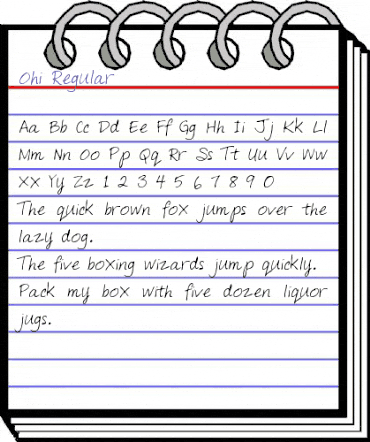 Ohi Regular
Aa Bb Cc Dd Ee Ff Gg Hh Ii Jj Kk Ll
Mm Nn Oo Pp Qq Rr Ss Tt Uu Vv Ww
Xx Yy Zz 1 2 3 4 5 6 7 8 9 0
The quick brown fox jumps over the
lazy dog.
The five boxing wizards jump quickly.
Pack my box with five dozen liquor
jugs.